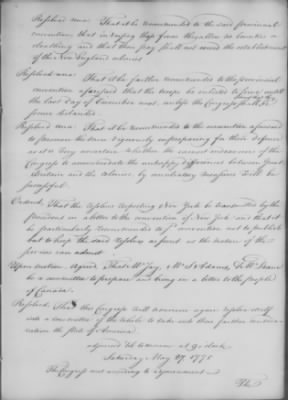 Resolved una: That it be recommended to the said provincial
convention that in raising those forces they allow no bounties or
cloathing and that their pay shall not exceed the establishment
of the New England colonies
Resolved una: That it be further recommended to the provincial
convention aforesaid that the troops be enlisted to serve until
the last day of December next, unless the Congress shall
sooner disbanded.
Resolved una: That it be recommended to the convention aforesaid
to persevere the more vigorously in preparing for their defence
as it is very uncertain whether the earnest endeavours of the
Congress to accommodate the unhappy differences between Great
Britain and the colonies, by conciliatory measures will be
successful.
Ordered, That the resolves respecting New York be transmitted by the
president in a letter to the convention of New York and that it
be particularly recommended to sd. convention not to publish
but to keep the said resolves as secret as the nature of the
services can admit
Upon motion Agreed That Mr Jay, Mr S. Adams & Mr Deane
be a committee to prepare and bring in a letter to the people
of Canada.
Resolved: That this Congress will tomorrow again resolve itself
into a committee of the whole to take into their farther consideration
the state of America
adjourned till tomorrow at 9 o'clock
Saturday May 27. 1775
The Congress met according to adjournment
The